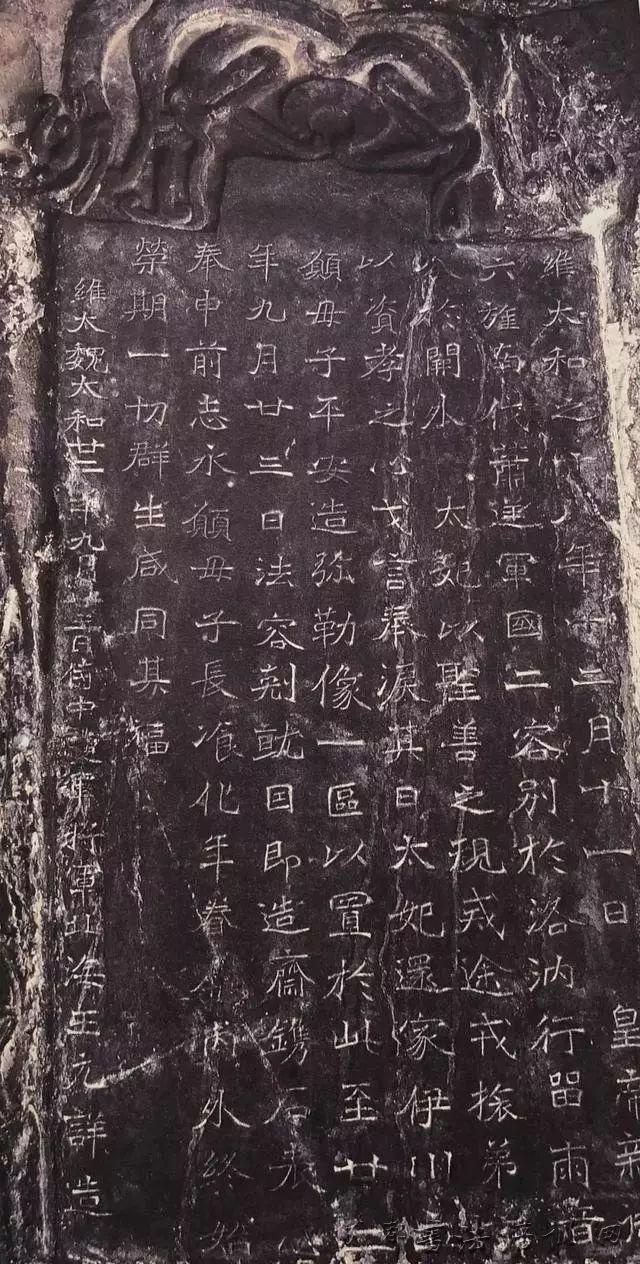 維太和之八年十二月十一日 皇帝親御
六旌南伐蕭逆軍國二容別於洛汭行留兩音
分於闕外 太妃以聖善之規戒途戎旅弟
以資孝之心戈言奉淚其日太妃還家伊川立
願母子平安造弥勒像一區以置於此至廿二
年九月廿三日法容剋就因即造齋鐫石表心
奉申前志永願母子長飡化年眷屬內外終始
榮期一切群生咸同其福
維大魏太和廿二年九月廿三日侍中護軍將軍北海王元詳造